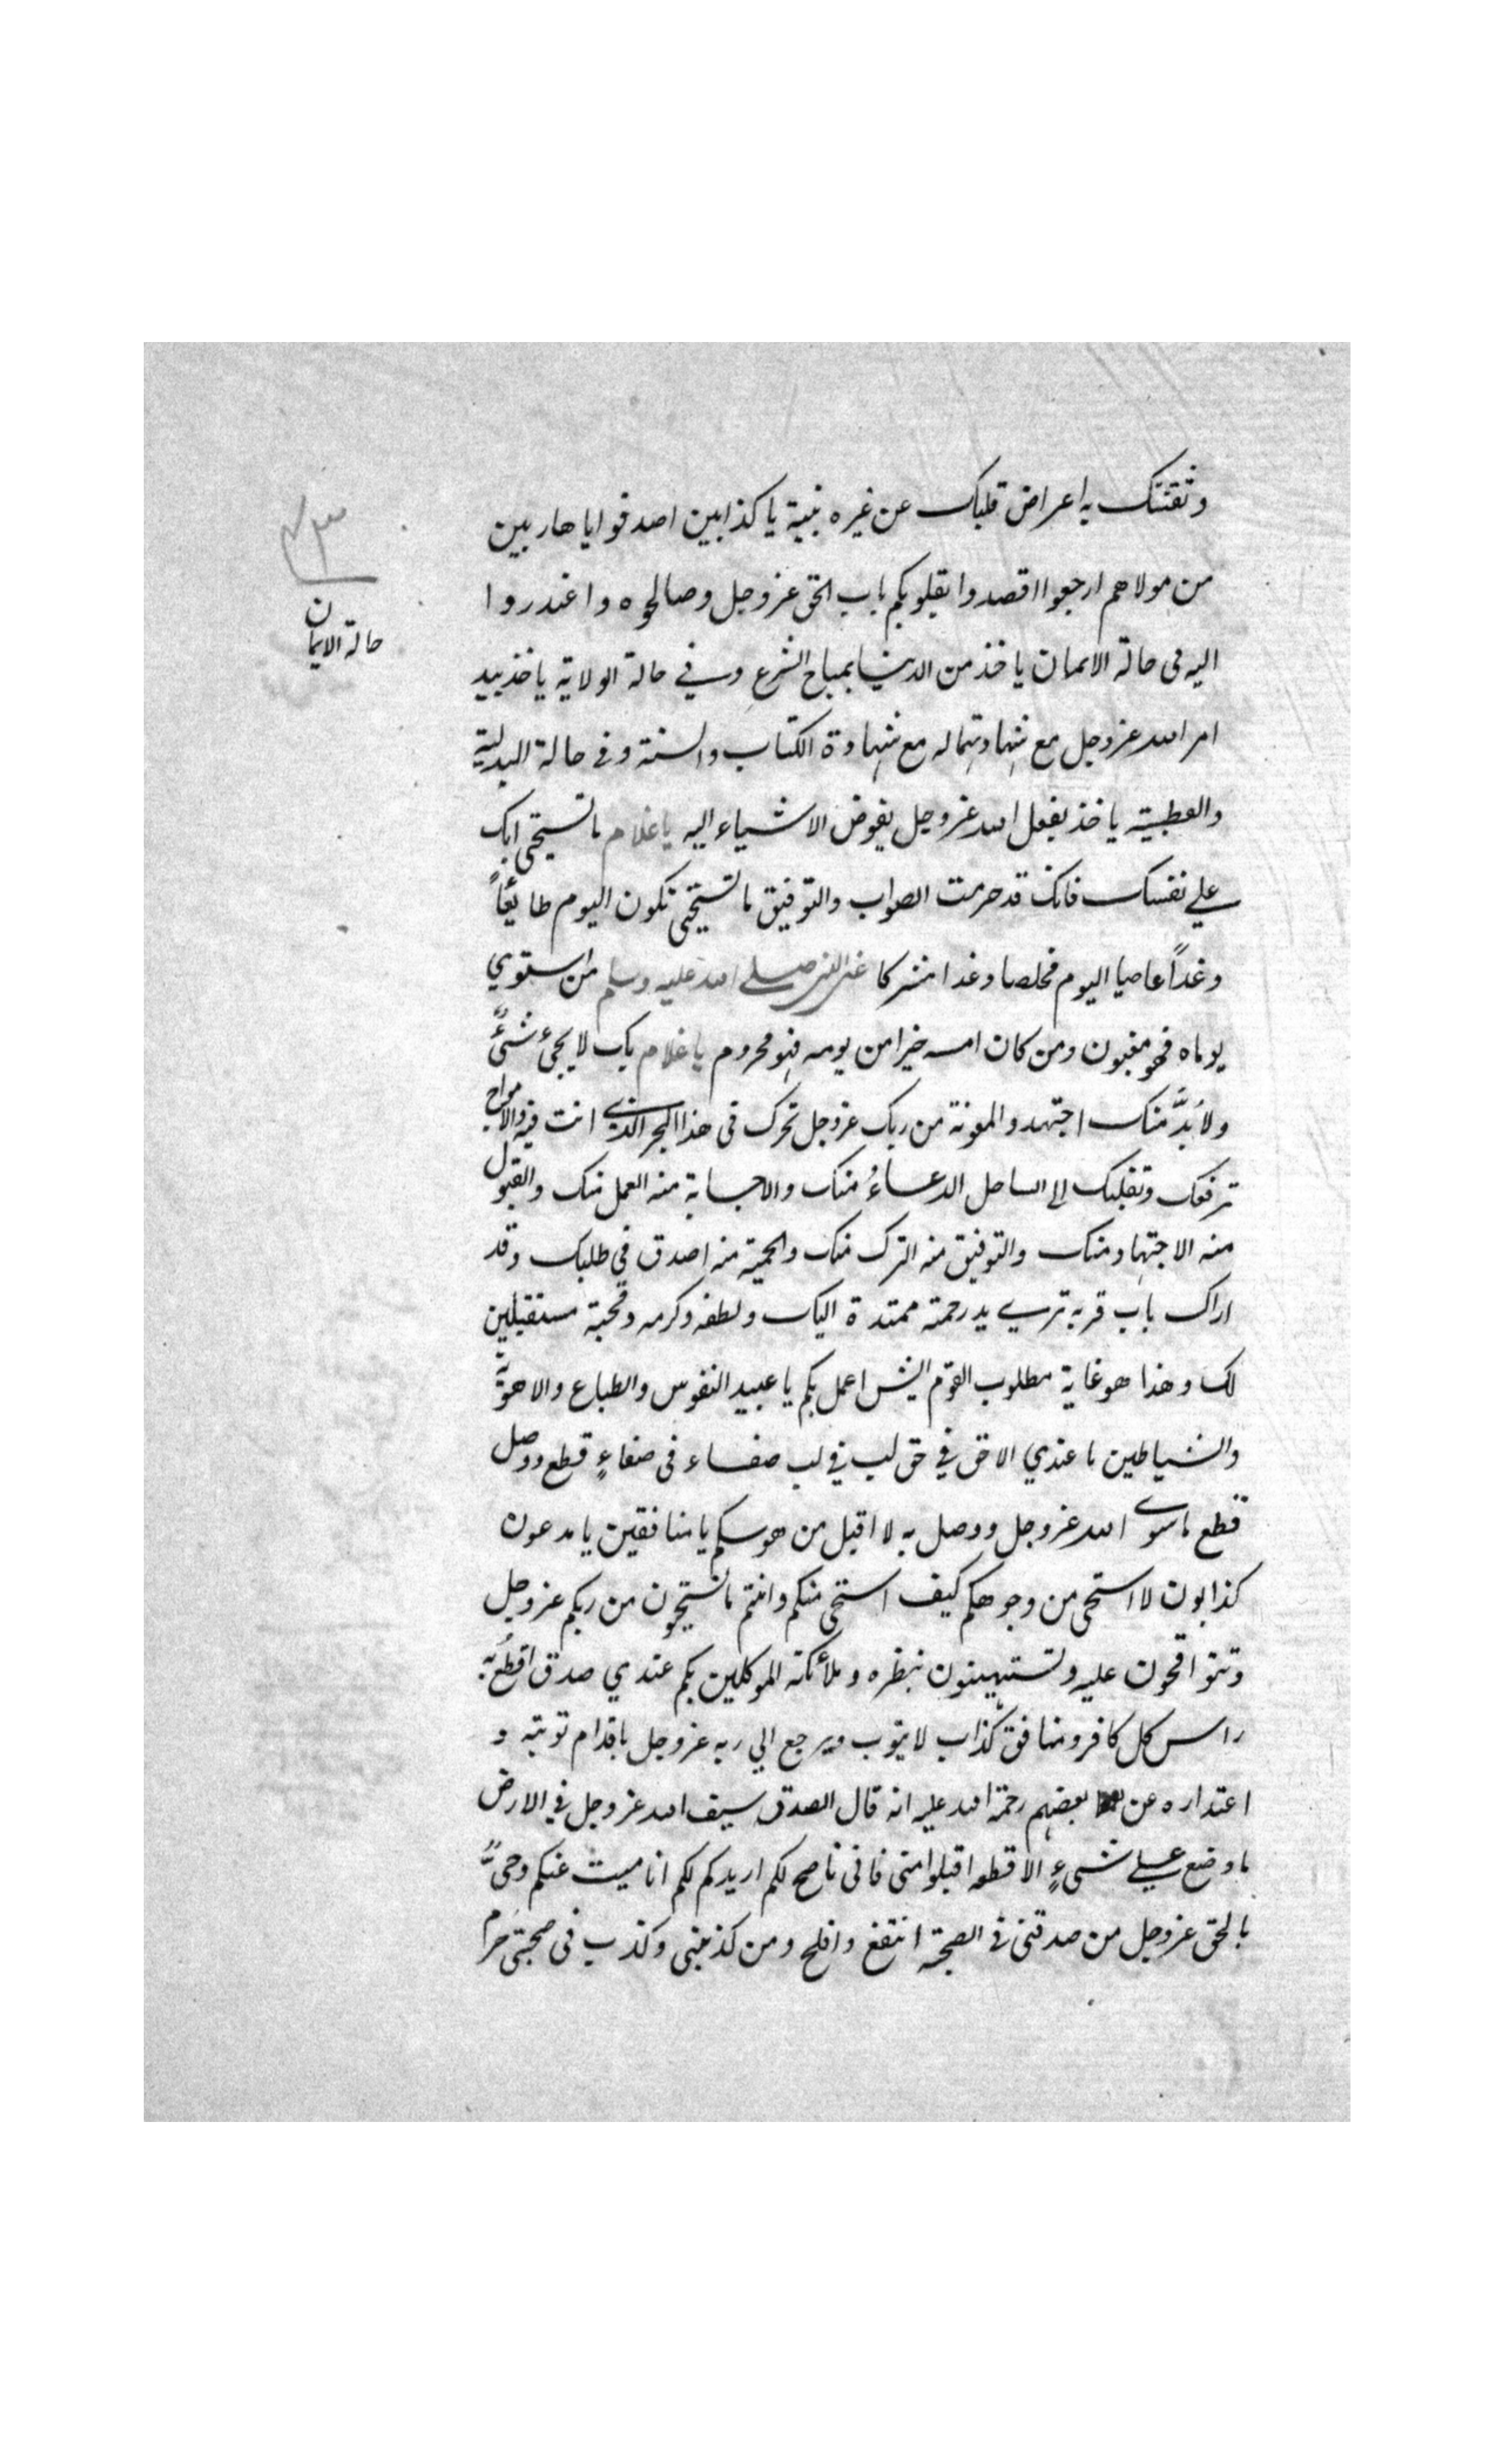 وثقتك به اعراض قلبك عن غيره بنية يا كذابين اصدقوا يا هاربين
من مولاهم ارجعوا اقصدوا بقلوبكم باب الحق عز وجل وصالحوه واعتذروا
اليه فى حالة الايمان ياخذ من الدنيا بمباح الشرع وفي حالة الولاية ياخذ بيد
امر الله عز وجل مع شهادتهما له مع شهادة الكتاب والسنة وفى حالة البدلية
والقطبية ياخذ بفعل الله عز وجل يفوض الاشياء اليه يا غلام ما تستحى ابك
على نفسك فانك قد حرمت الصواب والتوفيق ما تستحى تكون اليوم طائعاً
وغداً عاصيا اليوم مخلصا وغدا مشركا عن النبى صلى الله عليه وسلم من استوي
يوماه فهو مغبون ومن كان امسه خيرا من يومه فهو محروم يا غلام بك لا يجئ شئٌ
ولا بدَّ منك اجتهد والمعونة من ربك عز وجل تحرك فى هذا البحر الذى انت فيه والامواج
ترفعك وتقلبك الى الساحل الدعاءُ منك والاجابة منه العمل منك والقبول
منه الاجتهاد منك والتوفيق منه الترك منك والحمية منه اصدق فى طلبك وقد
اراك باب قربه ترى يد رحمته ممتدة اليك ولطفه وكرمه ومحبته مستقبلين
لك وهذا هو غاية مطلوب القوم ايش اعمل بكم يا عبيد النفوس والطباع والاهوية
والشياطين ما عندي الا حق في حق لب في لب صفاء فى صفاءٍ قطع ووصل
قطع ما سوى الله عز وجل ووصل به لا اقبل من هوسكم يا منافقين يا مدعون
كذابون لا استحى من وجوهكم كيف استحى منكم وانتم ما تستحيون من ربكم عز وجل
وتتواقحون عليه وتستهينون بنظره وملائكته الموكلين بكم عندي صدق اقطعُ به
راس كل كافر ومنافق كذاب لا يتوب ويرجع الي ربه عز وجل باقدام توبته و
اعتذاره عن بعضهم رحمة الله عليه انه قال الصدق سيف الله عز وجل في الارض
ما وضع على شىءٍ الا قطعه اقبلوا منى فانى ناصح لكم اريدكم لكم انا ميت عنكم وحىٌّ
بالحق عز وجل من صدقنى فى الصحبة انتفع وافلح ومن كذبنى وكذب فى صحبتى حرم
حالة الايمان